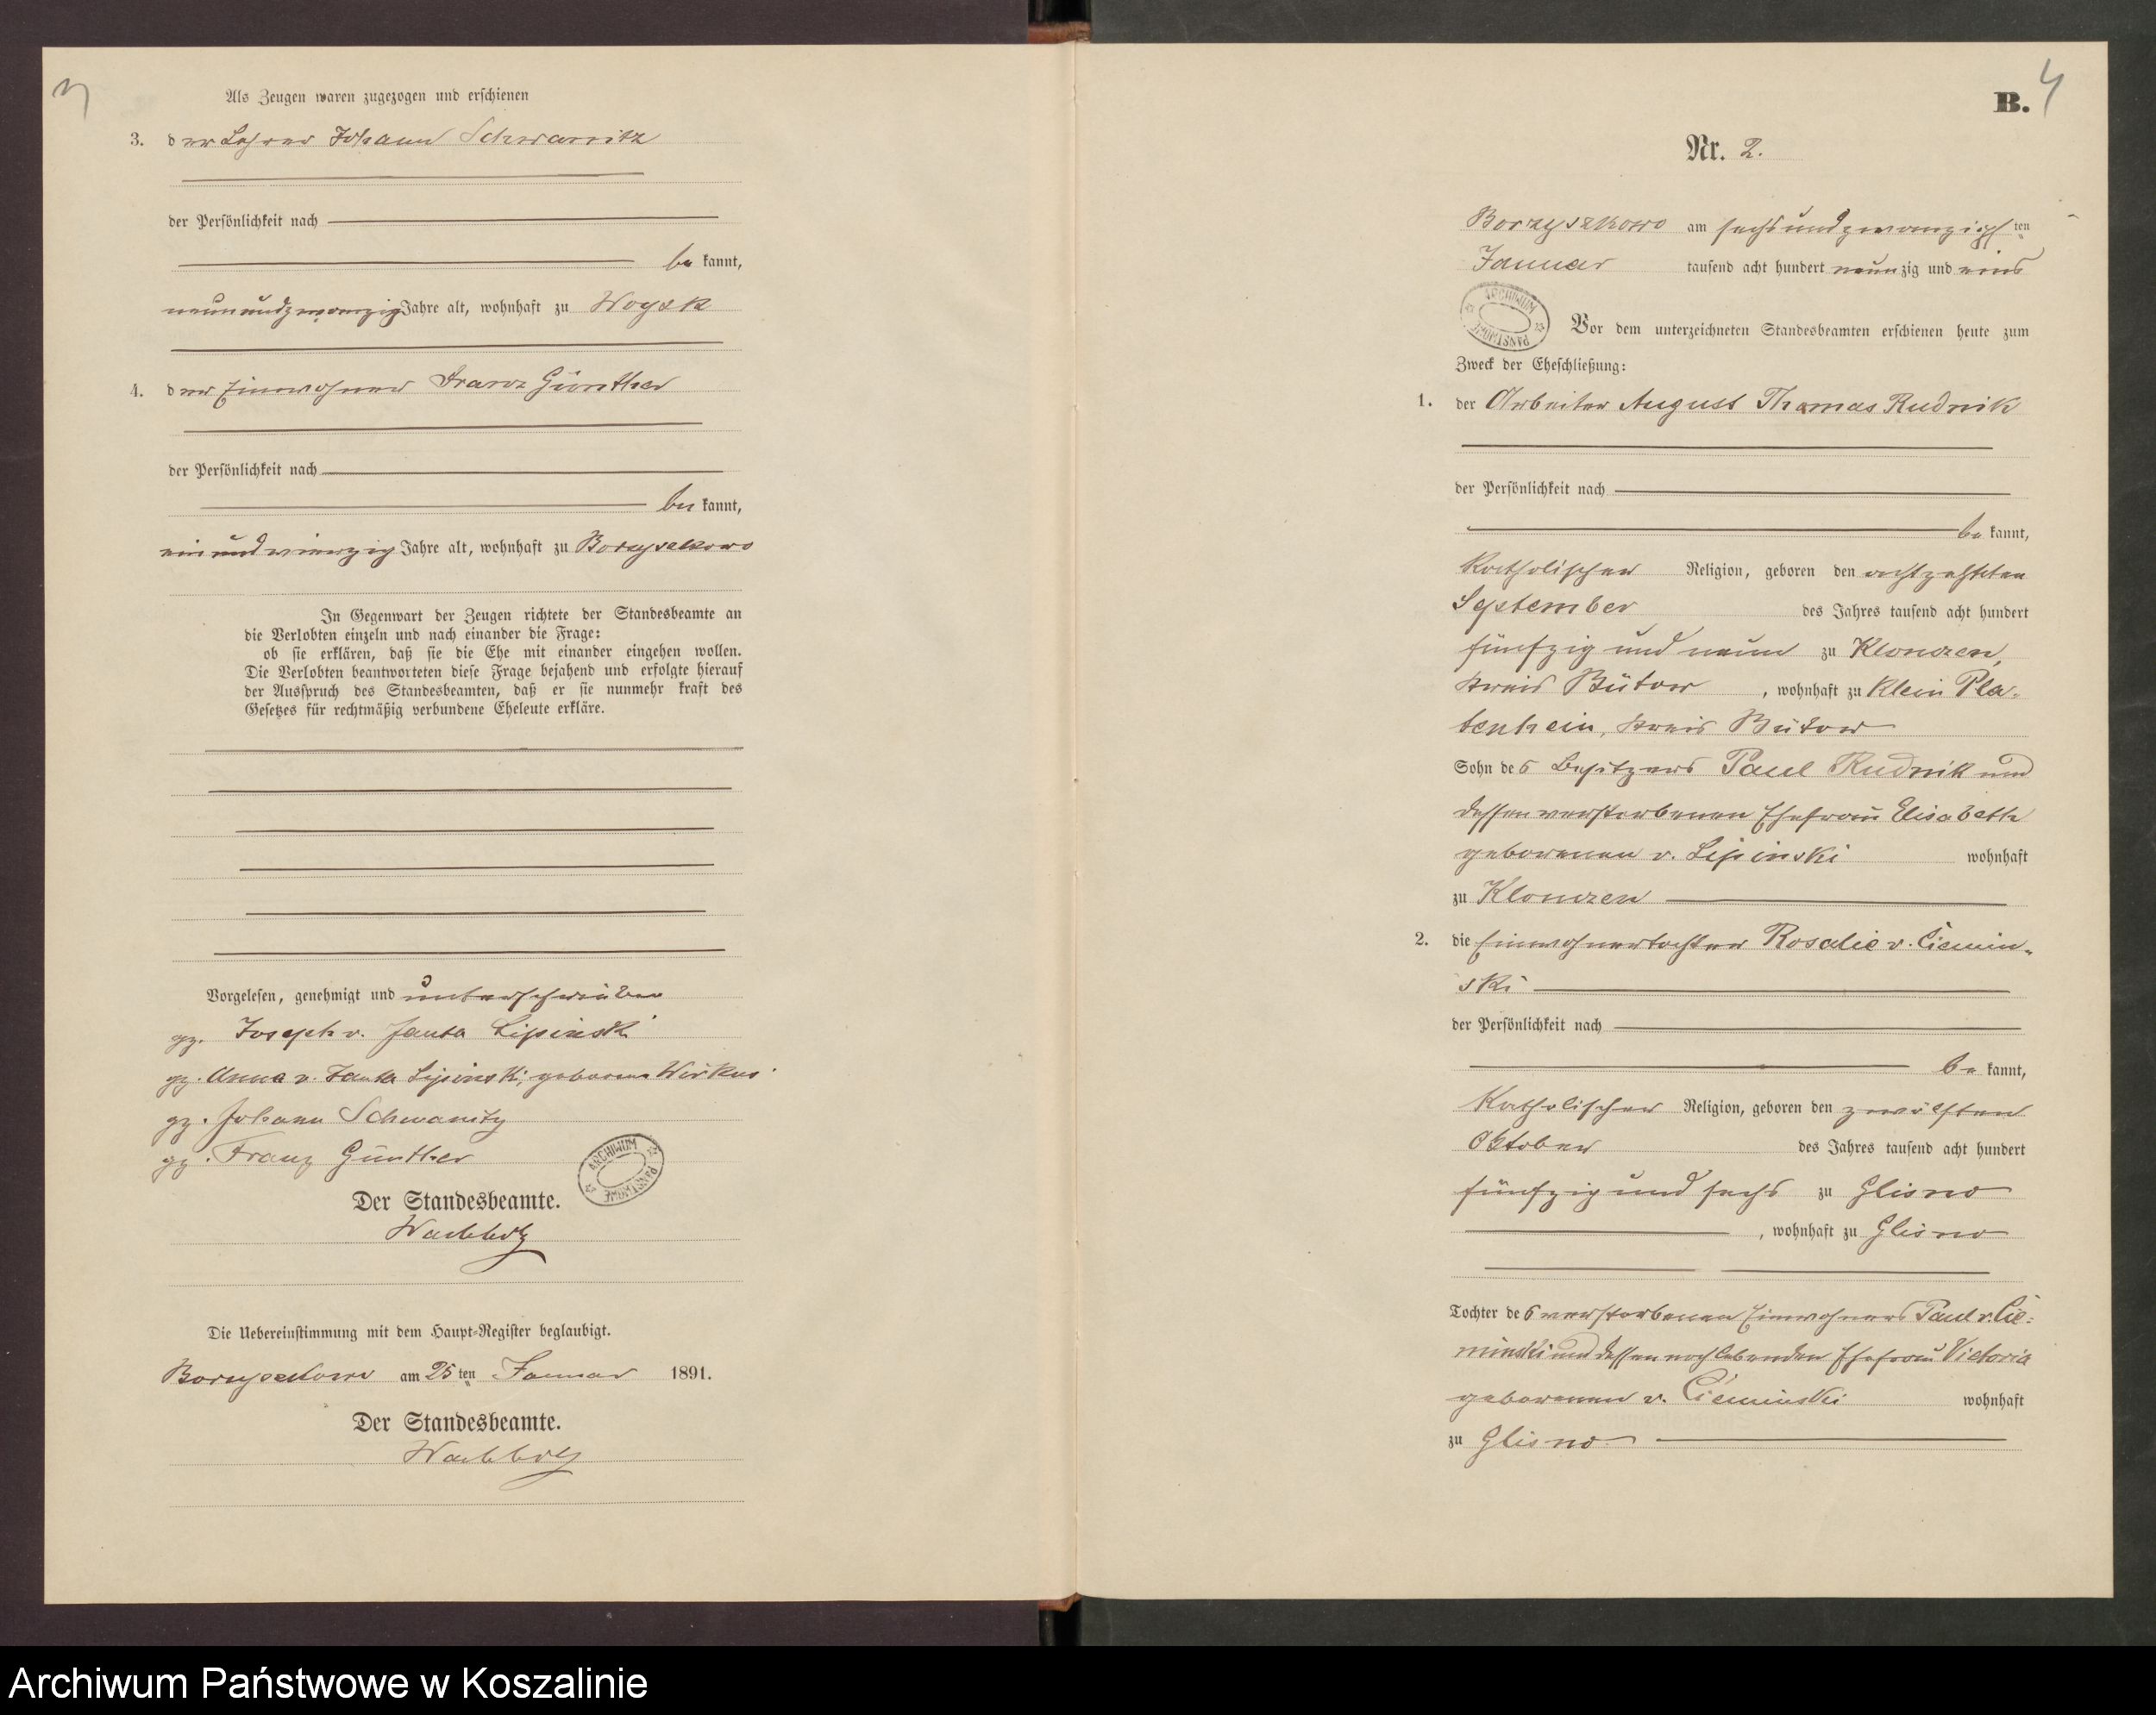 Als Zeugen waren zugezogen und erschienen
3. der Lehrer Johann Schwanitz
der Persönlichkeit nach
be kannt,
neunundzwanzig Jahre alt, wohnhaft zu Woysk
4. der Einwohner Franz Günther
der Persönlichkeit nach
be kannt,
einundvierzig Jahre alt, wohnhaft zu Borzyszkowo
In Gegenwart der Zeugen richtete der Standesbeamte an
die Verlobten einzeln und nach einander die Frage:
ob sie erklären, daß sie die Ehe mit einander eingehen wollen.
Die Verlobten beantworteten diese Frage bejahend und erfolgte hierauf
der Ausspruch des Standesbeamten, daß er sie nunmehr kraft des
Gesetzes für rechtmäßig verbundene Eheleute erkläre.
Vorgelesen, genehmigt und unterschrieben
gz. Joseph v. Janta Lipinski
gz. Anna v. Janta Lipinski, geborene Wirkus
gz. Johann Schwanitz
gz. Franz Günther
ARCHIWUM PAŃSTWOWE
Der Standesbeamte.
Wachholz
Die Uebereinstimmung mit dem Haupt-Register beglaubigt.
Borzyszkowo am 25 ten Januar 1891.
Der Standesbeamte.
Wachholz
B. 4
Nr. 2.
Borzyszkowo am sechsundzwanzigsten
Januar tausend acht hundert neunzig und eins
ARCHIWUM PAŃSTWOWE
Vor dem unterzeichneten Standesbeamten erschienen heute zum
Zweck der Eheschließung:
1. der Arbeiter August Thomas Rudnik
der Persönlichkeit nach
be kannt,
Katholischer Religion, geboren den achtzehnten
September des Jahres tausend acht hundert
fünfzig und neun zu Klonczen,
Kreis Bütow, wohnhaft zu Klein Pla-
tenhein, Kreis Bütow
Sohn des Besitzers Paul Rudnik und
dessen verstorbenen Ehefrau Elisabeth
geborenen v. Lipinski wohnhaft
zu Klonczen
2. die Einwohnertochter Rosalie v. Ciemin-
ski
der Persönlichkeit nach
be kannt,
Katholischer Religion, geboren den zwölften
Oktober des Jahres tausend acht hundert
fünfzig und sechs zu Glisno
, wohnhaft zu Glisno
Tochter des verstorbenen Einwohners Paul v. Cie-
minski und dessen noch lebenden Ehefrau Victoria
geborenen v. Cieminski wohnhaft
zu Glisno
Archiwum Państwowe w Koszalinie